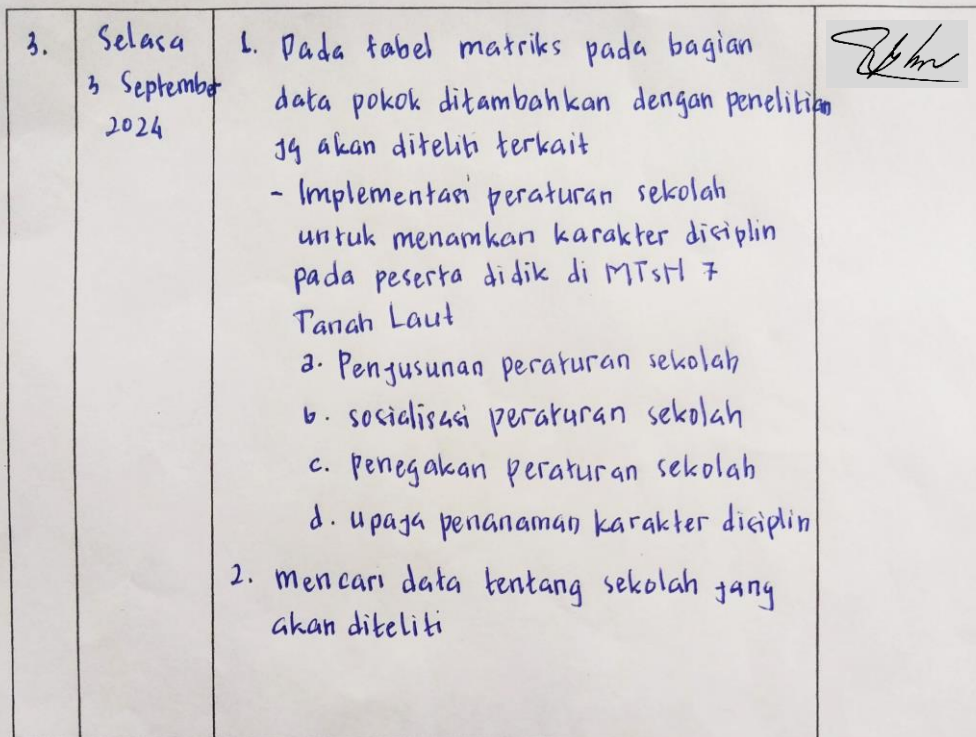 3.
Selasa
3 September
2024
1. Pada tabel matriks pada bagian
data pokok ditambahkan dengan penelitian
yg akan diteliti terkait
- Implementasi peraturan sekolah
untuk menamkan karakter disiplin
pada peserta didik di MTsN 7
Tanah Laut
a. Penyusunan peraturan sekolah
b. sosialisasi peraturan sekolah
c. penegakan peraturan sekolah
d. upaya penanaman karakter disiplin
2. mencari data tentang sekolah yang
akan diteliti